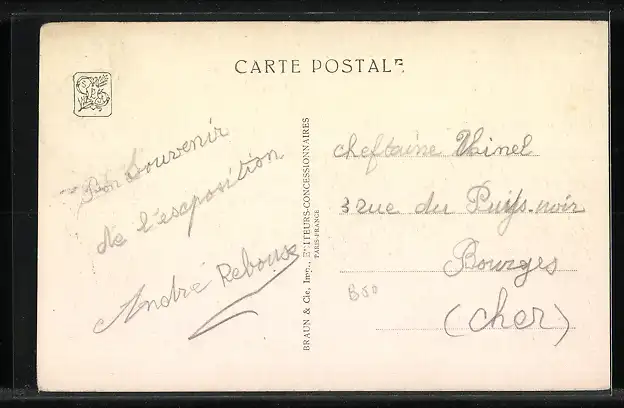 CARTE POSTALE
Bon Souvenir
de l'esaposition
André Reboux
BRAUN & Cie, Imp., EDITEURS-CONCESSIONNAIRES
PARIS-FRANCE
cheftaine Vainel
3 rue du Puits-noir
Bourges
(cher)
B50